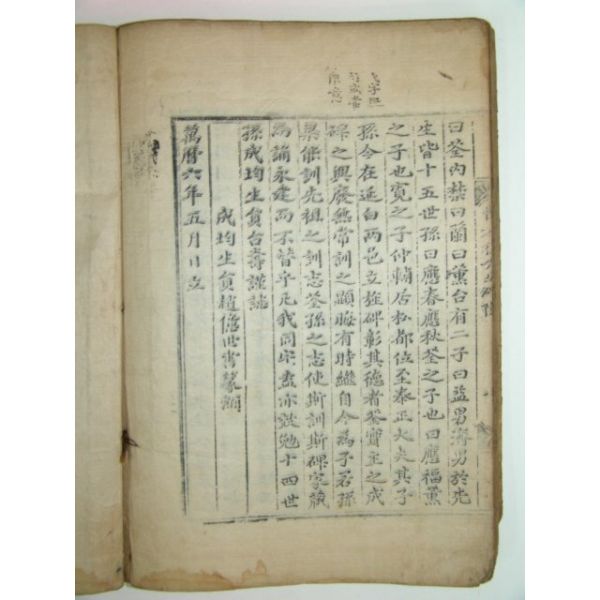 曰荃內禁曰蘭曰薰台有二子曰益男濟男於先
生皆十五世孫曰應春應秋荃之子也曰應福薰
之子也寬之子仲輔居松都位至泰正大夫其子
孫今在延白兩邑立旌碑彰其德者荃實主之成
碑之興廢無常訓之顯晦有時繼自今爲子若孫
果能訓先祖之訓志荃孫之志使斯訓斯碑家藏
而誦永建而不替乎凡我同宗盍亦强勉十四世
孫成均生員台壽謹誌
成均生員趙 世書篆額
萬曆六年五月日立